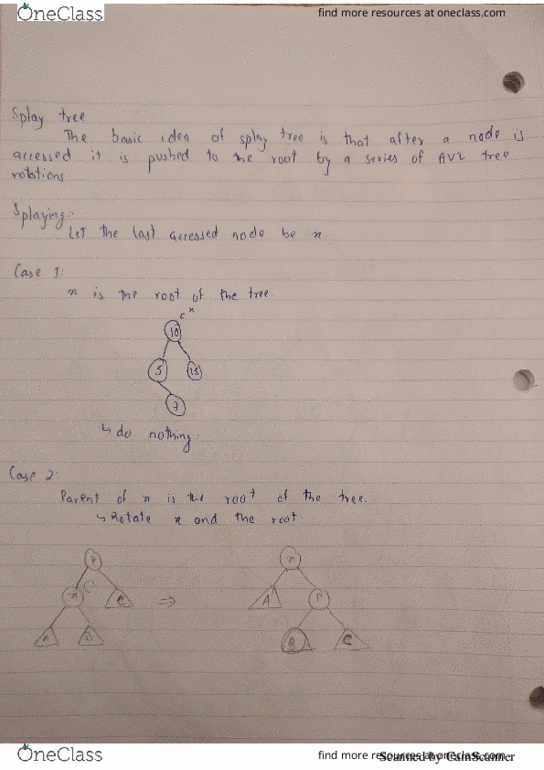 OneClass
find more resources at oneclass.com
Splay tree
The basic idea of splay tree is that after a node is
accessed it is pushed to the root by a series of AVL tree
rotations
Splaying:
Let the last accessed node be x
Case 1:
x is the root of the tree.
x
10
5 15
7
↳ do nothing.
Case 2:
Parent of x is the root of the tree.
↳ Rotate x and the root.
P x
x C ⇒ A P
A B B C
OneClass
find more resources at oneclass.com
Scanned by CamScanner